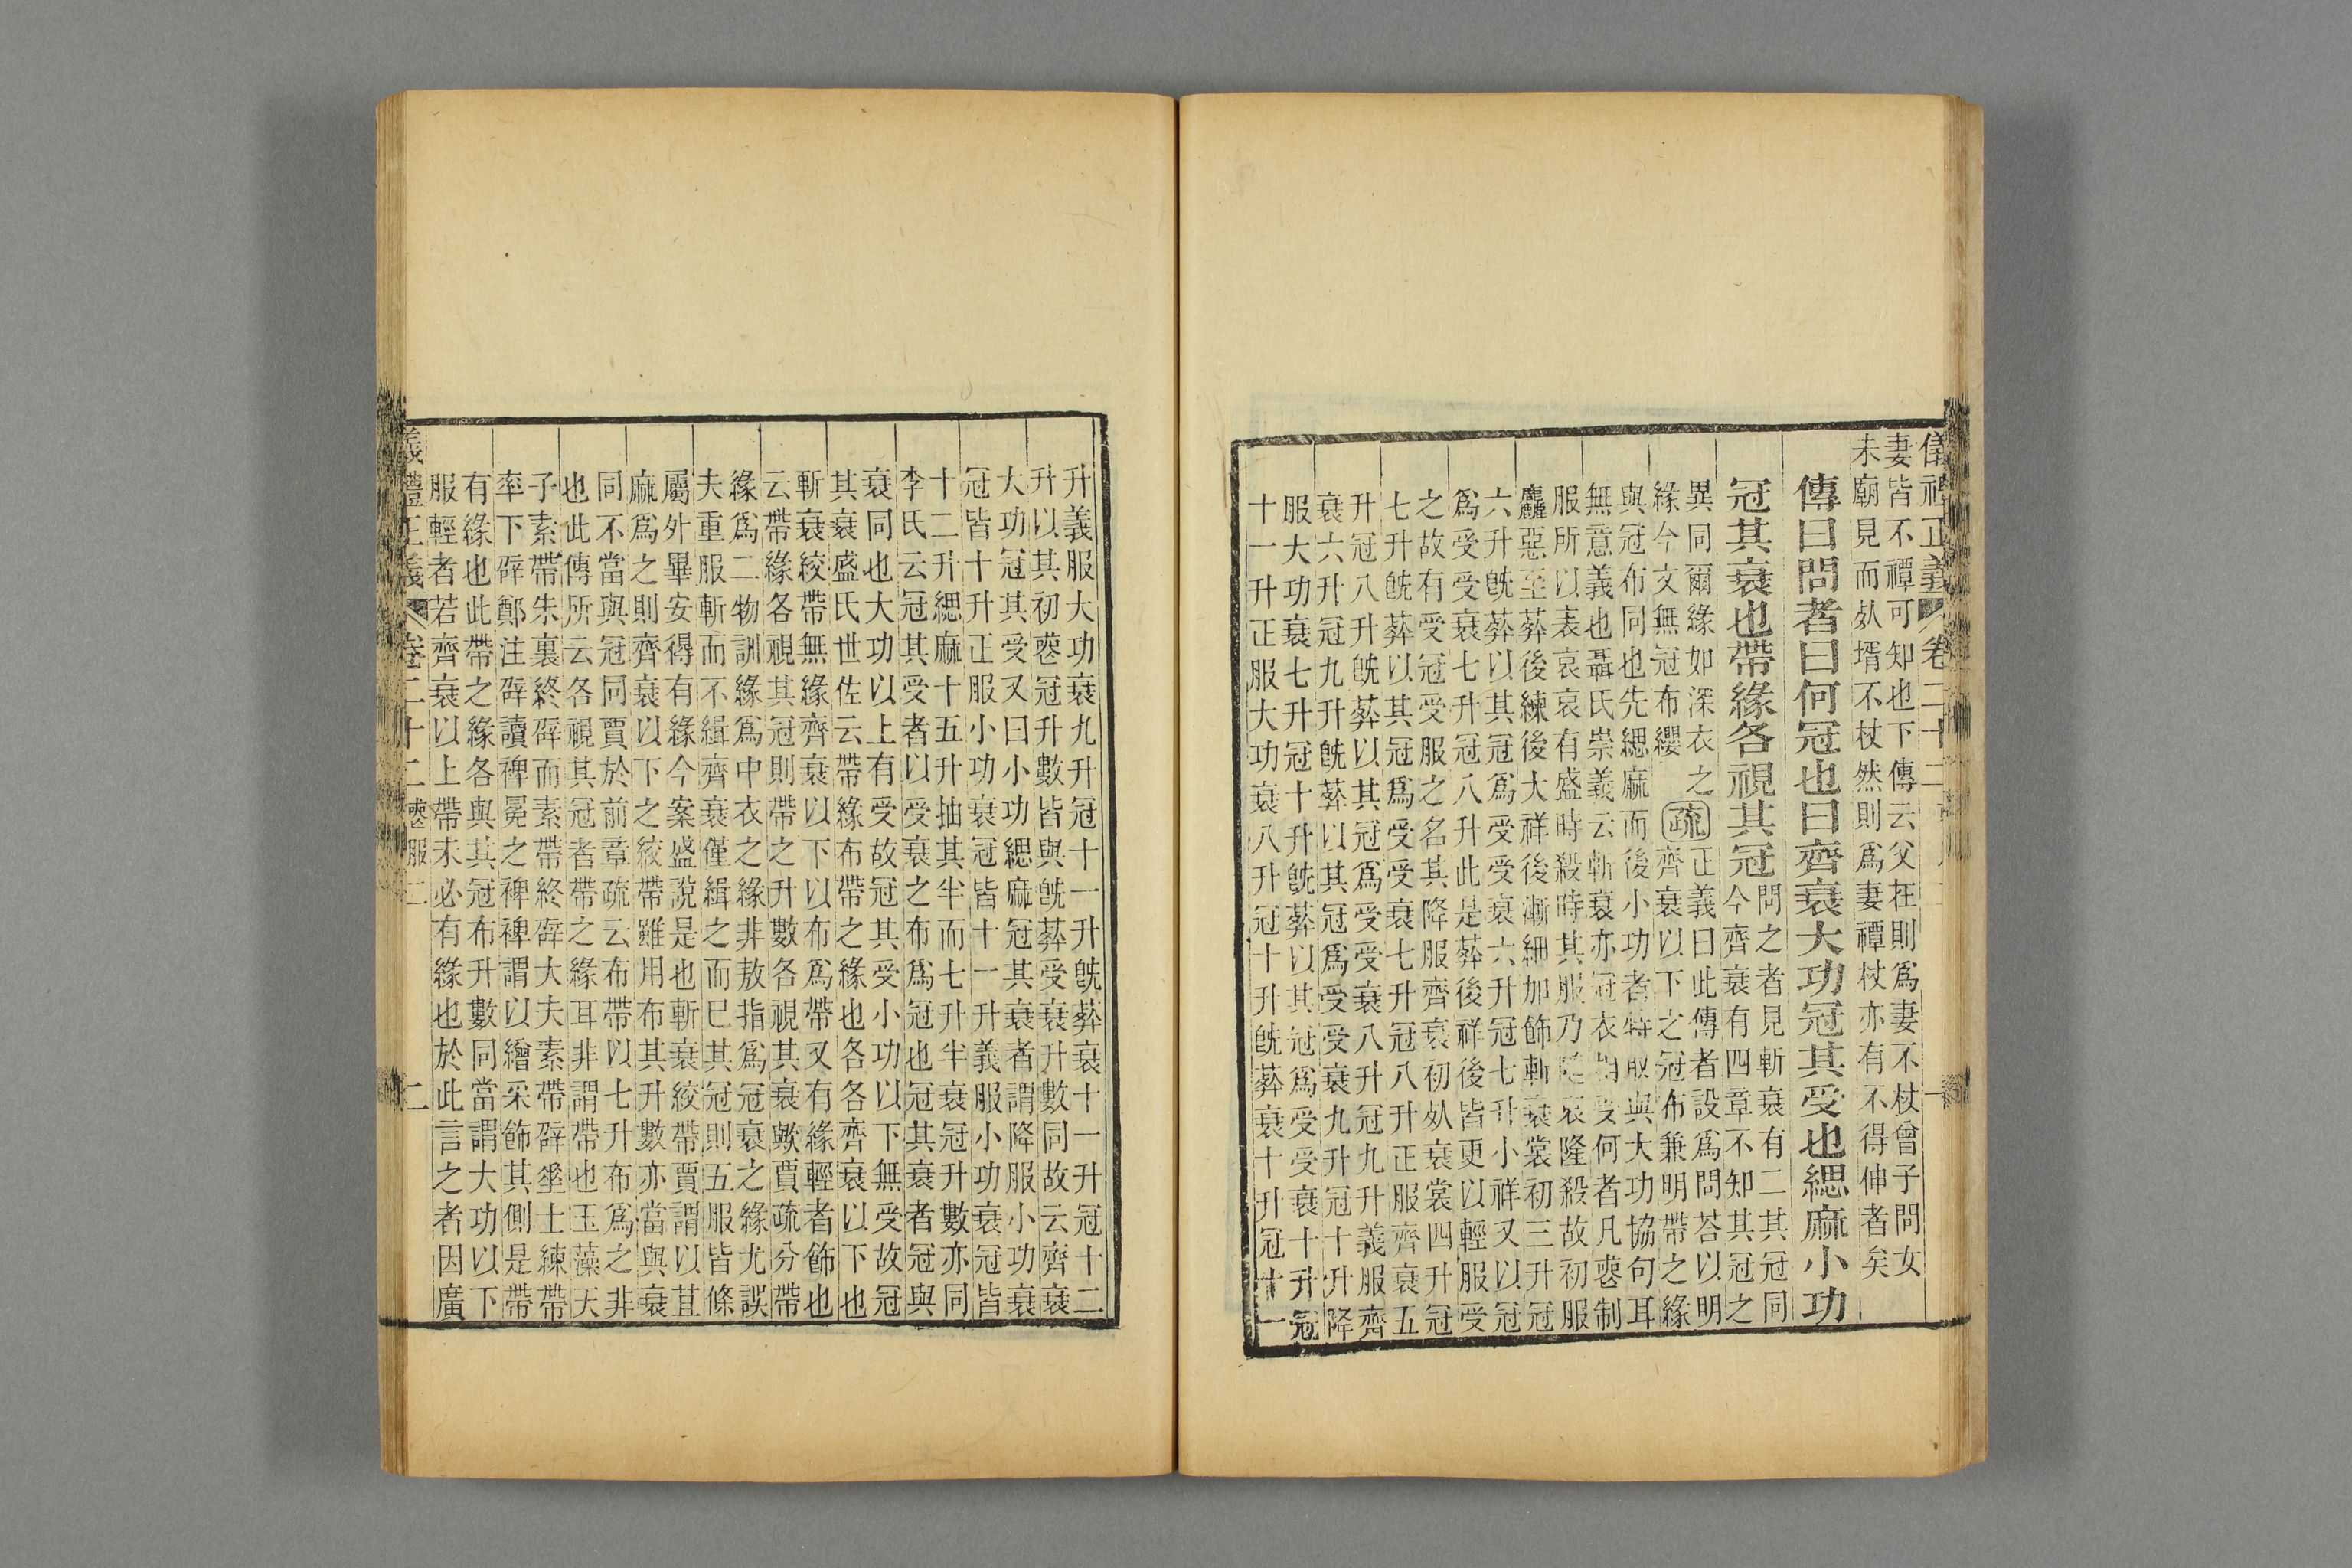 儀禮正義 卷二十二 一
妻皆不禫可知也下傳云父在則爲妻不杖曾子問女
未廟見而死壻不杖然則爲妻禫杖亦有不得伸者矣
傳曰問者曰何冠也曰齊衰大功冠其受也緦麻小功
冠其衰也帶緣各視其冠
問之者見斬衰有二其冠同
今齊衰有四章不知其冠之
異同爾緣如深衣之
緣今文無冠布纓
疏
正義曰此傳者設爲問荅以明
齊衰以下之冠布兼明帶之緣
與冠布同也先緦麻而後小功者特取與大功協句耳
無意義也聶氏崇義云斬衰亦冠衣相受何者凡喪制
服所以表哀哀有盛時殺時其服乃隨哀隆殺故初服
麤惡至葬後練後大祥後漸細加飾斬衰裳初三升冠
六升旣葬以其冠爲受受衰六升冠七升小祥又以冠
爲受受衰七升冠八升此是葬後祥後皆更以輕服受
之故有受冠受服之名其降服齊衰初死衰裳四升冠
七升旣葬以其冠爲受受衰七升冠八升正服齊衰五
升冠八升旣葬以其冠爲受受衰八升冠九升義服齊
衰六升冠九升旣葬以其冠爲受受衰九升冠十升降
服大功衰七升冠十升旣葬以其冠爲受受衰十升冠
十一升正服大功衰八升冠十升旣葬衰十升冠十一
升義服大功衰九升冠十一升旣葬衰十一升冠十二
升以其初喪冠升數皆與旣葬受衰升數同故云齊衰
大功冠其受又曰小功緦麻冠其衰者謂降服小功衰
冠皆十升正服小功衰冠皆十一升義服小功衰冠皆
十二升緦麻十五升抽其半而七升半衰冠升數亦同
李氏云冠其受者以受衰之布爲冠也冠其衰者冠與
衰同也大功以上有受故冠其受小功以下無受故冠
其衰盛氏世佐云帶緣布帶之緣也各各齊衰以下也
斬衰絞帶無緣齊衰以下以布爲帶又有緣輕者飾也
云帶緣各視其冠則帶之升數各視其衰歟賈疏分帶
緣爲二物訓緣爲中衣之緣非敖指爲冠衰之緣尤誤
夫重服斬而不緝齊衰僅緝之而已其冠則五服皆條
屬外畢安得有緣今案盛說是也斬衰絞帶賈謂以苴
麻爲之則齊衰以下之絞帶雖用布其升數亦當與衰
同不當與冠同賈於前章疏云布帶以七升布爲之非
也此傳所云各視其冠者帶之緣耳非謂帶也玉藻天
子素帶朱裏終辟而素帶終辟大夫素帶辟垂士練帶
率下辟鄭注辟讀裨冕之裨裨謂以繒采飾其側是帶
有緣也此帶之緣各與其冠布升數同當謂大功以下
服輕者若齊衰以上帶未必有緣也於此言之者因廣
義禮正義 卷二十二 喪服二 二